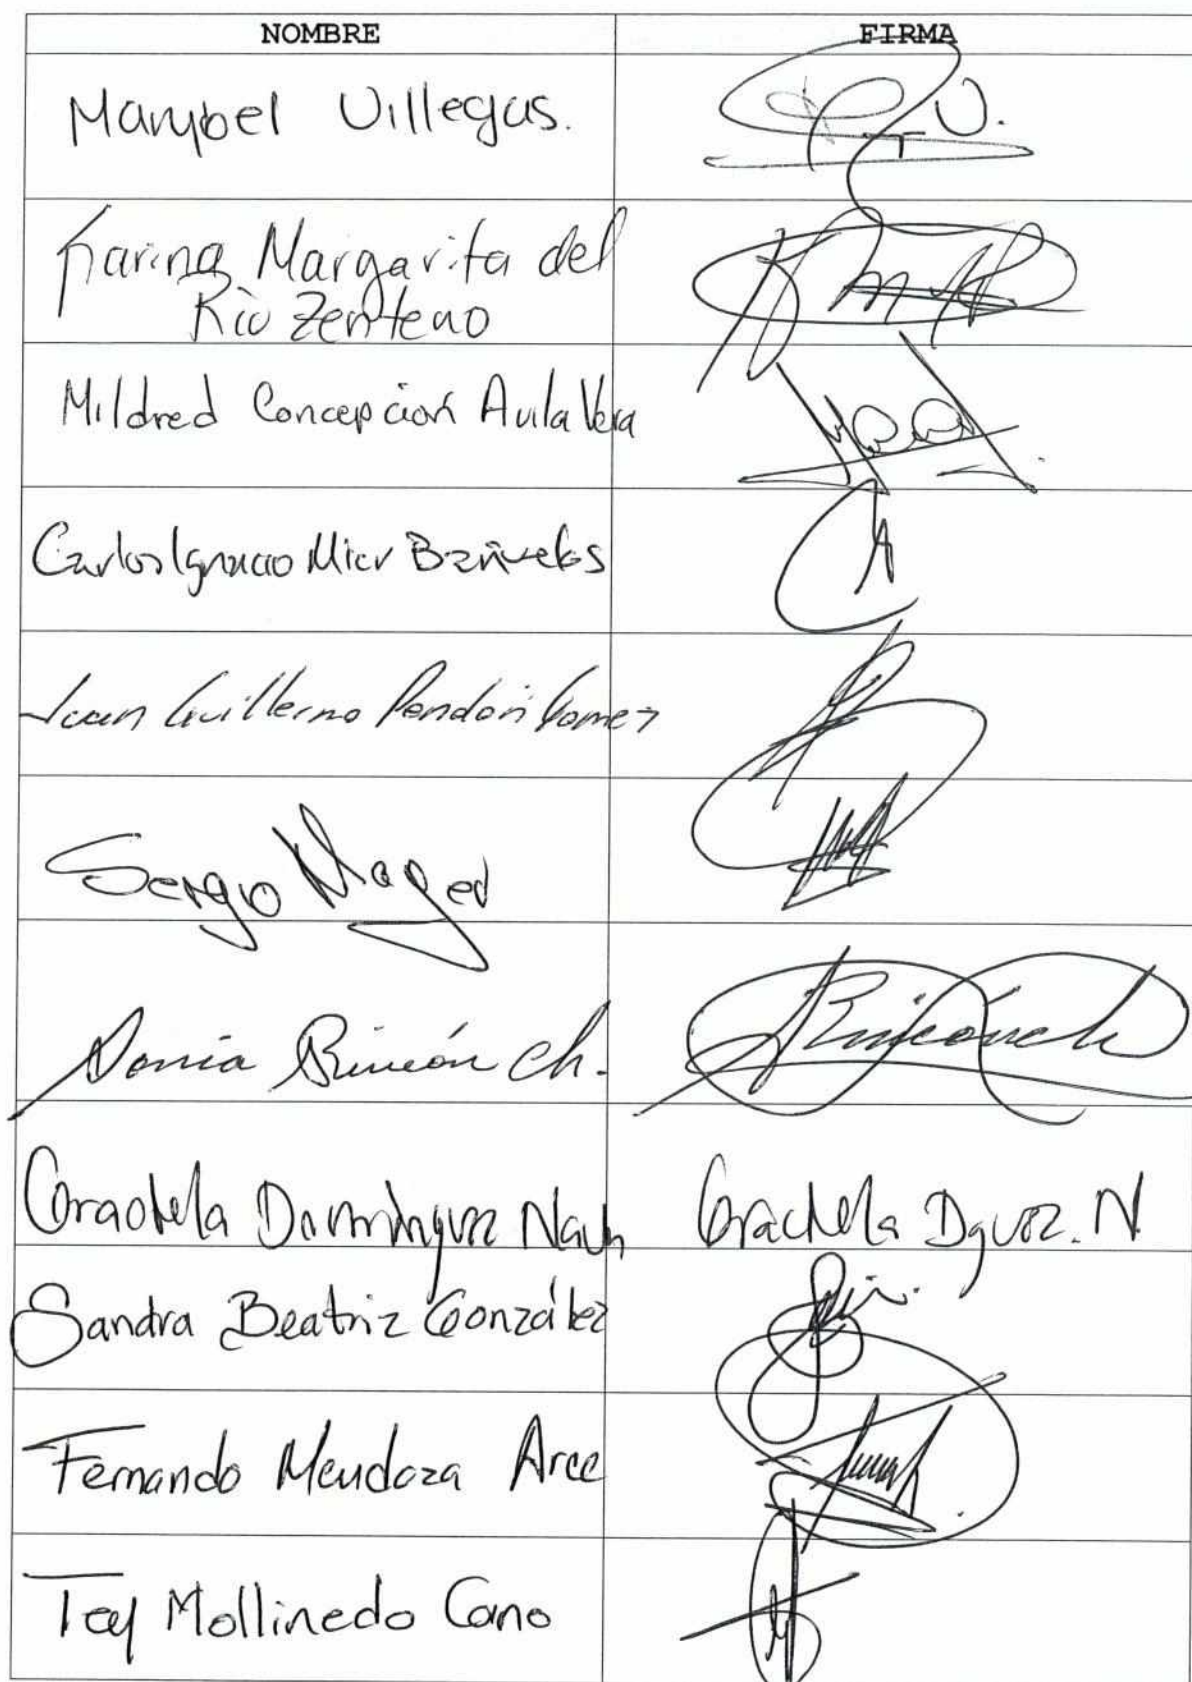 NOMBRE FIRMA
Marybel Villegas. V.
Karina Margarita del
Río Zenteno
Mildred Concepción Avila Vera
Carlos Ignacio Mier Bañuelos
Juan Guillermo Rendón Gomez
Sergio Mayer
Sonia Rincón Ch. Rincónch
Graciela Domínguez Nava Graciela Dguez. N.
Sandra Beatriz González
Fernando Mendoza Arce
Tey Mollinedo Cano